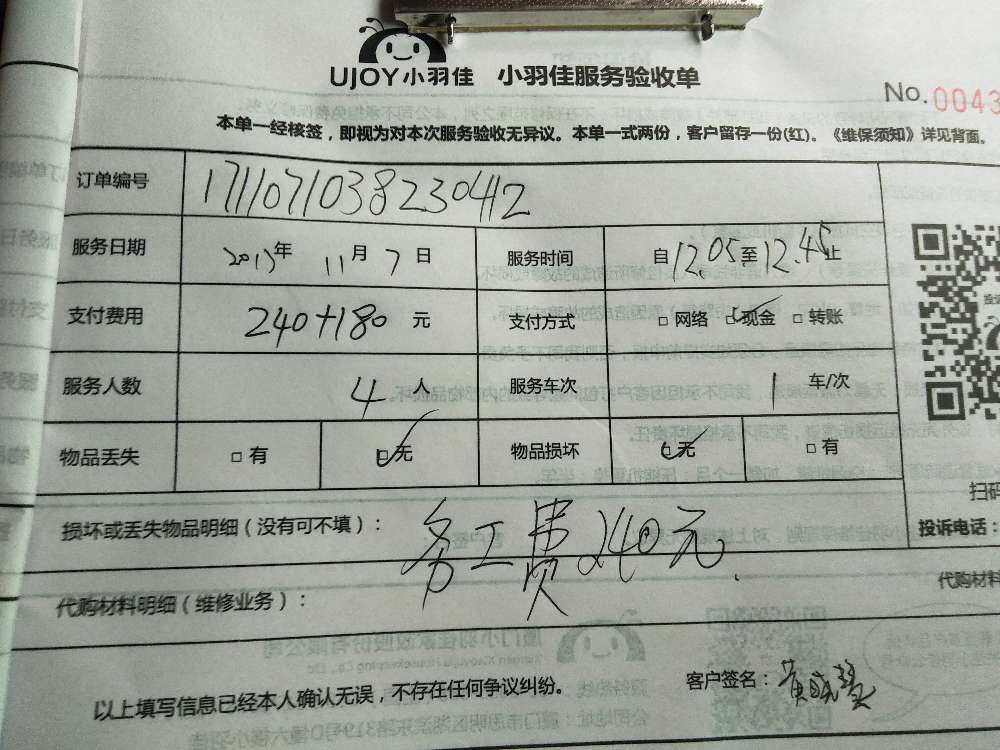 UJOY小羽佳 小羽佳服务验收单
No.0043
本单一经核签，即视为对本次服务验收无异议。本单一式两份，客户留存一份(红)。《维保须知》详见背面。
订单编号 171107103823042
服务日期 2017年 11月 7日 服务时间 自12.05至12.45止
支付费用 240+180 元 支付方式 □网络 □现金 □转账
服务人数 4人 服务车次 1 车/次
物品丢失 □有 □无 物品损坏 □无 □有
扫码
损坏或丢失物品明细（没有可不填）： 务工费240元
投诉电话：
代购材料明细（维修业务）： 代购材料
以上填写信息已经本人确认无误，不存在任何争议纠纷。 客户签名：黄